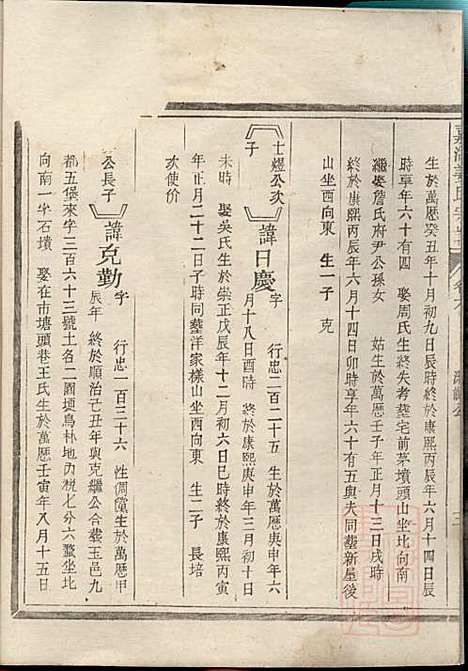 生於萬歷癸丑年十月初九日辰時終於康熙丙辰年六月十四日辰
時享年六十有四 娶周氏生終失考葬宅前茅墳頭山坐北向南
繼娶詹氏府尹公孫女 姑生於萬歷壬子年正月十三日戌時
終於康熙丙辰年六月十四日卯時享年六十有五與夫同葬新屋後
山坐西向東 生一子 克
士煜公次子
諱日慶
字 行忠二百二十五 生於萬歷庚申年六
月十八日酉時 終於康熙庚申年三月初十日
未時 娶吳氏生於崇正戊辰年十二月初六日巳時終於康熙丙寅
年正月二十二日子時同葬洋家樣山坐西向東 生二子 長培
次使价
公長子
諱克勤
字 行忠一百三十六 性倜儻生於萬歷甲
辰年 終於順治己丑年與克繼公合葬玉邑九
都五堡來字三百六十三號土名二圓墳鳥林地內稅七分六釐坐北
向南一字石墳 娶在市塘頭巷王氏生於萬歷壬寅年八月十五日